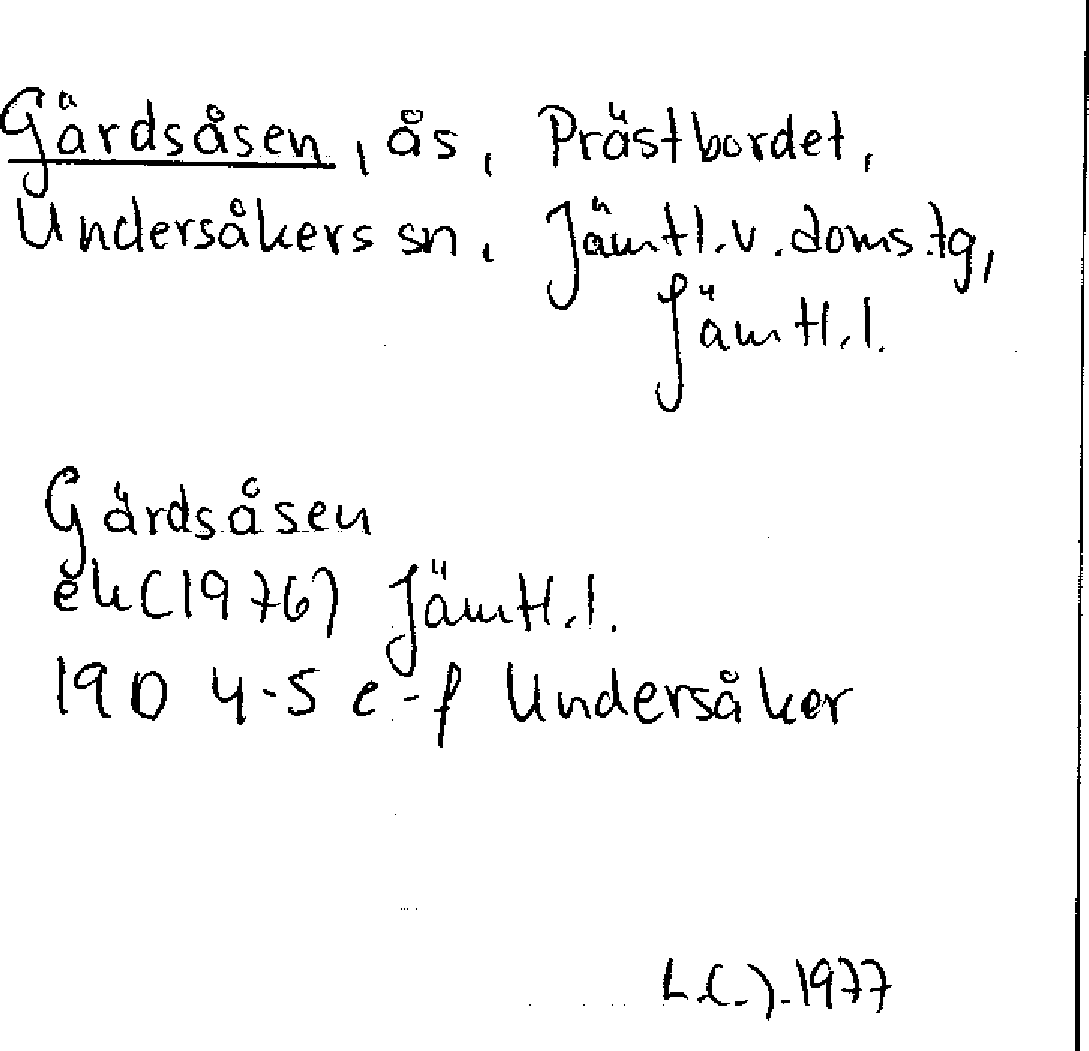 Gärdsåsen, ås, Prästbordet,
Undersåkers sn, Jämtl.v.doms.tg,
Jämtl.l.
Gärdsåsen
ek(1976) Jämtl.l.
19D 4-5 e-f Undersåker
1977